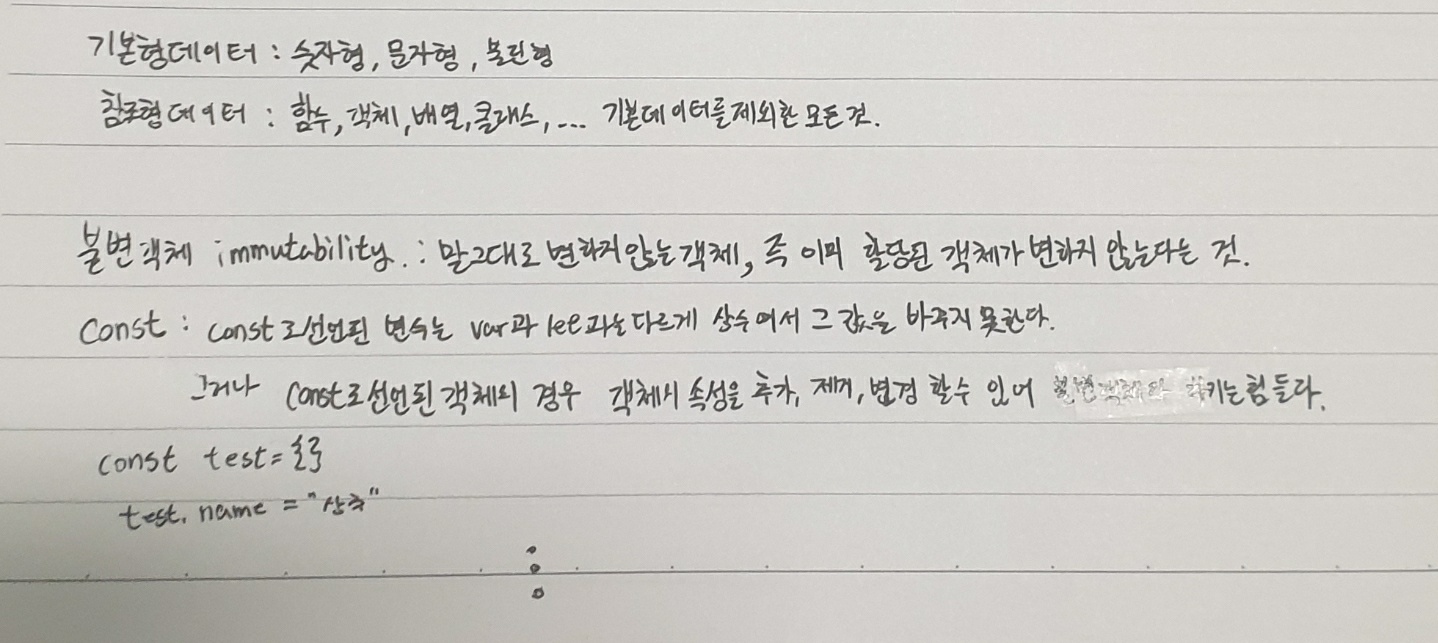 기본형데이터 : 숫자형, 문자형, 불린형
참조형데이터 : 함수, 객체, 배열, 클래스, ... 기본데이터를제외한 모든것.
불변객체 immutability. : 말그대로 변하지않는객체, 즉 이미 할당된 객체가 변하지 않는다는 것.
Const : const로선언된 변수는 var과 let과는다르게 상수여서 그 값을 바꾸지 못한다.
그러나 const로선언된 객체의 경우 객체의 속성을 추가, 제거, 변경 할수 있어 불변객체라 하기는힘들다.
const test = {}
test. name = "상추"